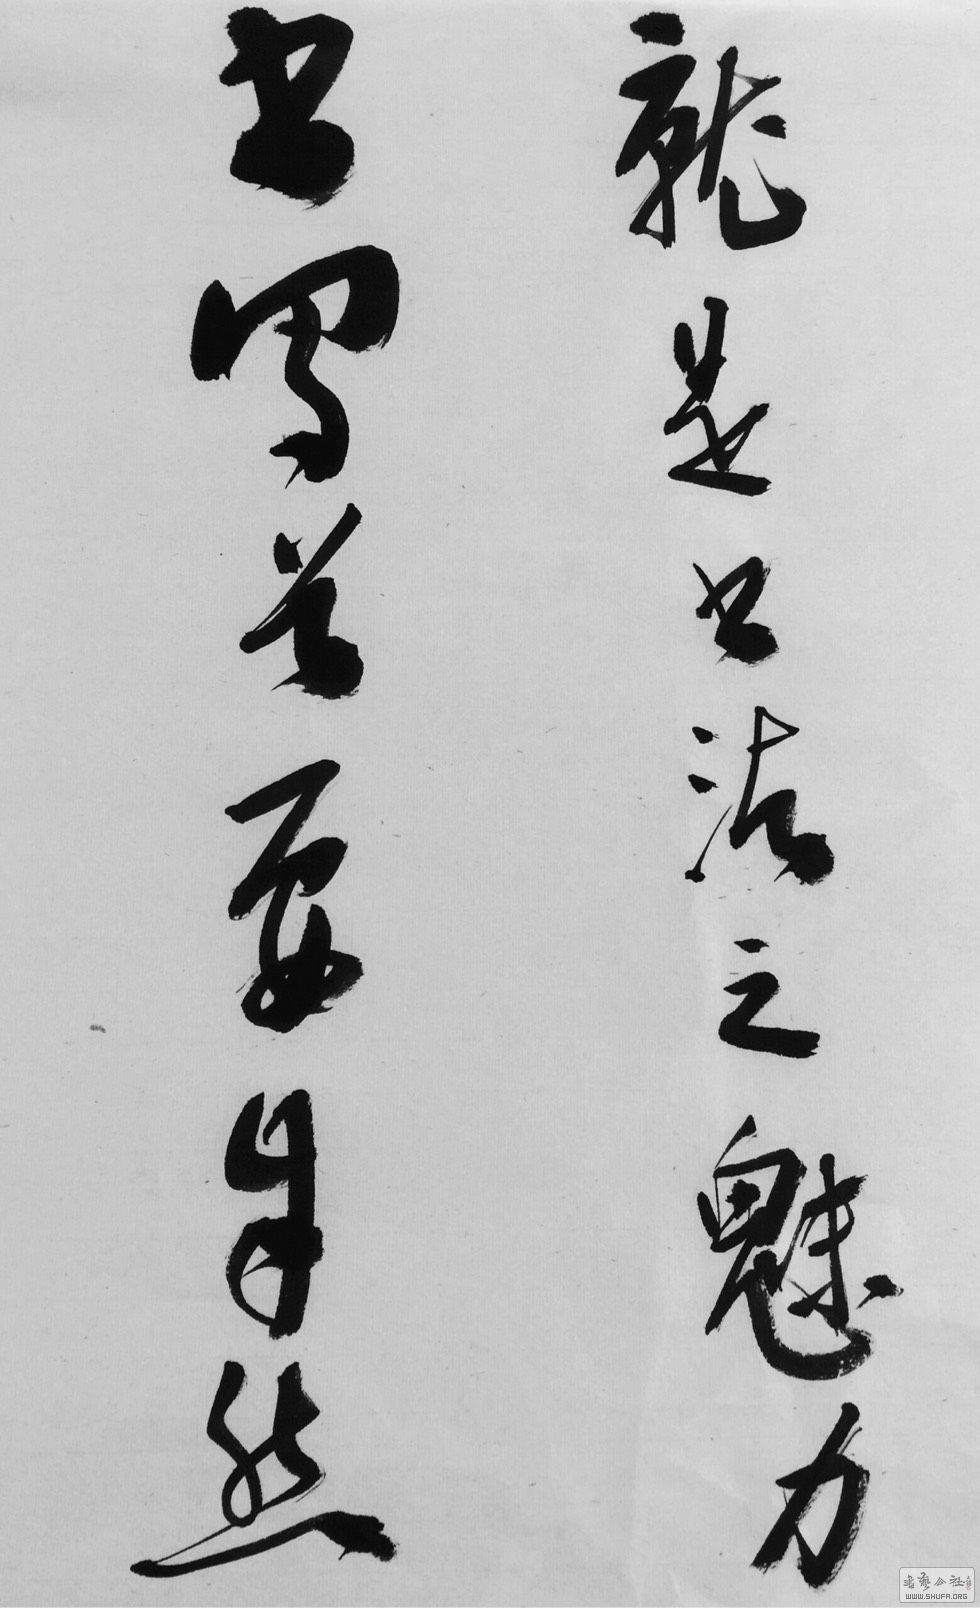 就是书法之魅力
书写首要自然
书艺公社
WWW.SHUFA.ORG